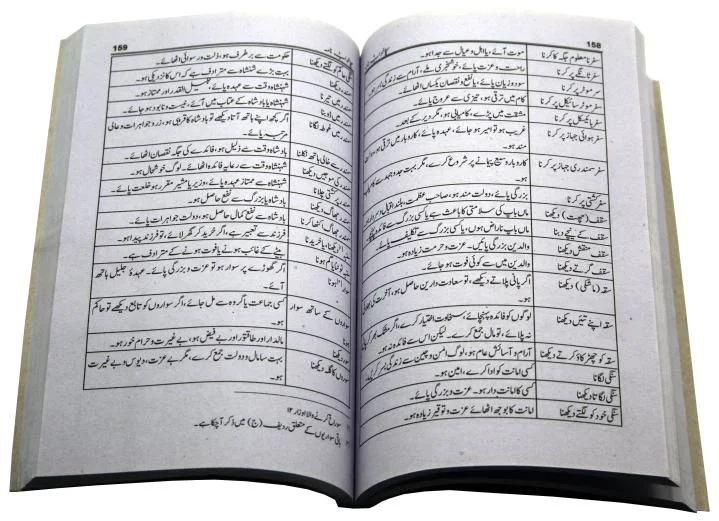 158
سفر نامعلوم جگہ کا کرنا
موت آئے، یا اہل و عیال سے جدا ہو۔
سفر تانگے پر کرنا
راحت و عزت پائے، خوشخبری ملے، آرام سے زندگی
سر موٹر پر کرنا
سود و زیاں پائے، یا نفع و نقصان یکساں اٹھائے۔
سفر موٹر سائیکل پر کرنا
کام میں ترقی ہو، تیزی سے عروج پائے۔
سفر بائیسکل پر کرنا
مشقت میں پڑے، کامیابی ہو، مگر دیر کے بعد۔
سفر ہوائی جہاز پر کرنا
غریب ہو تو امیر ہو جائے، عہدہ پائے، کاروبار میں ترقی ہو،
مند ہو۔
سفر سمندری جہاز پر کرنا
کاروبار وسیع پیمانے پر شروع کرے، مگر بہت جدوجہد
ہو۔
سفر کشتی پر کرنا
بزرگی پائے، دولت مند ہو، صاحب عظمت، بلند اقبال
سقف (چھت) دیکھنا
ماں باپ کی سلامتی کا باعث ہے یا کسی بزرگ سے فائدہ
سقف کے نیچے دبنا
ماں باپ ناراض ہوں، یا کسی بزرگ سے تکلیف پائے۔
سقف منقش دیکھنا
والدین بزرگی پائیں۔ عزت و حرمت زیادہ ہو۔
سقف گرتے دیکھنا
والدین میں سے کوئی فوت ہو جائے۔
سقہ (ماشکی) دیکھنا
اگر پانی پلاتے دیکھے، تو سعادت دارین حاصل ہو، آخرت کی
ہو۔
سقہ اپنے تئیں دیکھنا
لوگوں کو فائدہ پہنچائے، سخاوت اختیار کرے، اگر مشک بھر کر
نہ پلائے، تو مال جمع کرے۔ لیکن اس سے فائدہ نہ ہو۔
سقہ کو چھڑکاؤ کرتے دیکھنا
آرام و آسائش عام ہو، لوگ امن و چین سے زندگی بسر کریں۔
سنگی لگانا
کسی امانت کو ادا کرے، امین ہو۔
سنگی لگاتا دیکھنا
کسی کا امانت دار ہو۔ عزت و بزرگی پائے۔
سنگی خود کو لگتے دیکھنا
امانت کا بوجھ اٹھائے عزت و توقیر زیادہ ہو۔
159
دیکھنا
حکومت سے برطرف ہو، ذلت و رسوائی اٹھائے۔
بہت بڑے شہنشاہ سے مترادف ہے کہ اس کا نزدیکی ہو۔
شہنشاہ وقت سے عہدہ پائے، جلیل القدر اور ممتاز ہو۔
میں تیرنا
شہنشاہ یا بادشاہ کے عتاب میں آئے، نیست و نابود ہو جائے۔
میں ڈوبنا
اگر کچھ اپنے ہاتھ آتا دیکھے تو بادشاہ کا قربی ہو، زر و جواہرات و عالی
مرتبہ پائے۔
میں غوطہ لگانا
بادشاہ وقت سے ذلیل ہو، فائدے کی جگہ نقصان اٹھائے۔
سے خالی ہاتھ نکلنا
شہنشاہ وقت سے رعایہ فائدہ اٹھائے۔ لوگ خوشحال ہو۔
کی موجیں دیکھنا
شہنشاہ سے ممتاز عہدہ پائے، وزیر یا مشیر مقرر ہو خلعت پائے۔
میں کشتی چلانا
بادشاہ یا بزرگ سے نفع حاصل ہو۔
جھاگ دیکھنا
بادشاہ سے نفع کمال حاصل ہو، دولت جواہرات پائے۔
جھاگ اکٹھا کرنا
فرزند سے تعبیر ہے، اگر خرید کر گھر لائے، تو فرزند پیدا ہو۔
دیکھنا یا خریدنا
بیٹے کے غائب ہونے یا فوت ہونے کے مترادف ہے۔
گم ہونا
اگر گھوڑے پر سوار ہو تو عزت و بزرگی پائے۔ عہدۂ جلیل ہاتھ
آئے۔
ہونا
کسی جماعت یا گروہ سے مل جائے، اگر سواروں کو تابع دیکھے تو حاکم
ہو۔
سواروں کے ساتھ سوار
ہونا
مالدار اور طاقتور اور بے فیض ہو، بے غیرت و حرام خور ہو۔
سور دیکھنا
بہت سا مال و دولت جمع کرے، مگر بے عزت، دیوس و بے غیرت
ہو۔
سوروں کا گلہ دیکھنا
سوراخ کرنے والا اوزار ۱۲
باقی سواریوں کے متعلق ردیف (ج) میں ذکر آچکا ہے۔